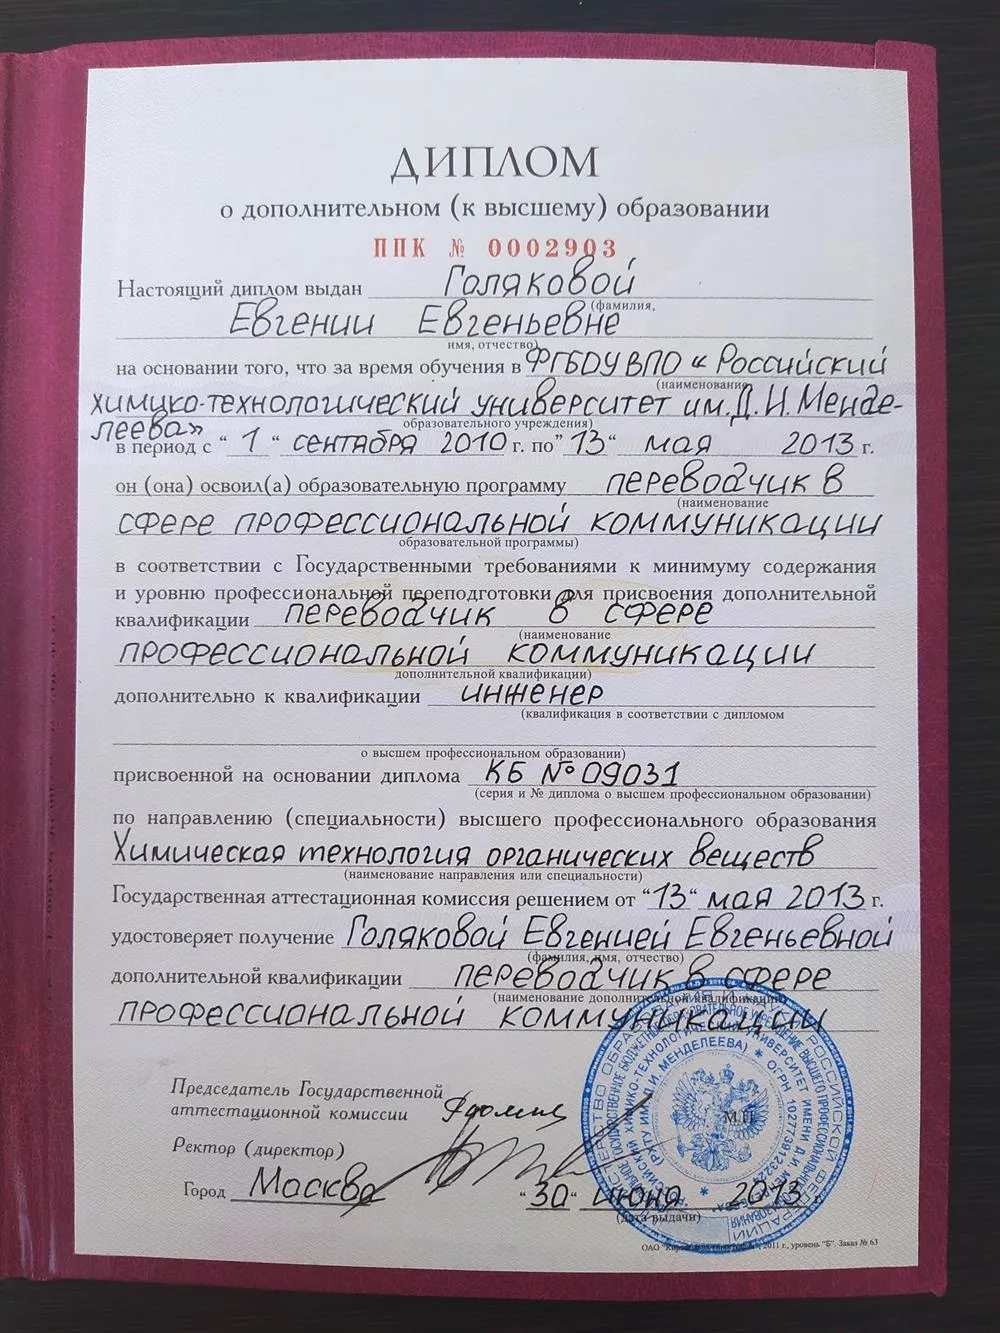 ДИПЛОМ
о дополнительном (к высшему) образовании
ППК № 0002903
Настоящий диплом выдан Голяковой
(фамилия,
Евгении Евгеньевне
имя, отчество)
на основании того, что за время обучения в ФГБОУ ВПО « Российский
(наименование
химико-технологический университет им. Д. И. Менде-
образовательного учреждения)
леева»
в период с “ 1 “ сентября 2010 г. по” 13“ мая 2013 г.
он (она) освоил(а) образовательную программу переводчик в
(наименование
сфере профессиональной коммуникации
образовательной программы)
в соответствии с Государственными требованиями к минимуму содержания
и уровню профессиональной переподготовки для присвоения дополнительной
квалификации переводчик в сфере
(наименование
профессиональной коммуникации
дополнительной квалификации)
дополнительно к квалификации инженер
(квалификация в соответствии с дипломом
о высшем профессиональном образовании)
присвоенной на основании диплома КБ № 09031
(серия и № диплома о высшем профессиональном образовании)
по направлению (специальности) высшего профессионального образования
Химическая технология органических веществ
(наименование направления или специальности)
Государственная аттестационная комиссия решением от “13“ мая 2013 г.
удостоверяет получение Голяковой Евгенией Евгеньевной
(фамилия, имя, отчество)
дополнительной квалификации переводчик в сфере
(наименование дополнительной квалификации)
профессиональной коммуникации
Председатель Государственной
аттестационной комиссии
М.П.
Ректор (директор)
Город Москва “30“ июня 2013 г.
(дата выдачи)
(РХТУ ИМ. Д.И. МЕНДЕЛЕЕВА) * ОГРН
2011 г., уровень “Б”. Заказ № 63